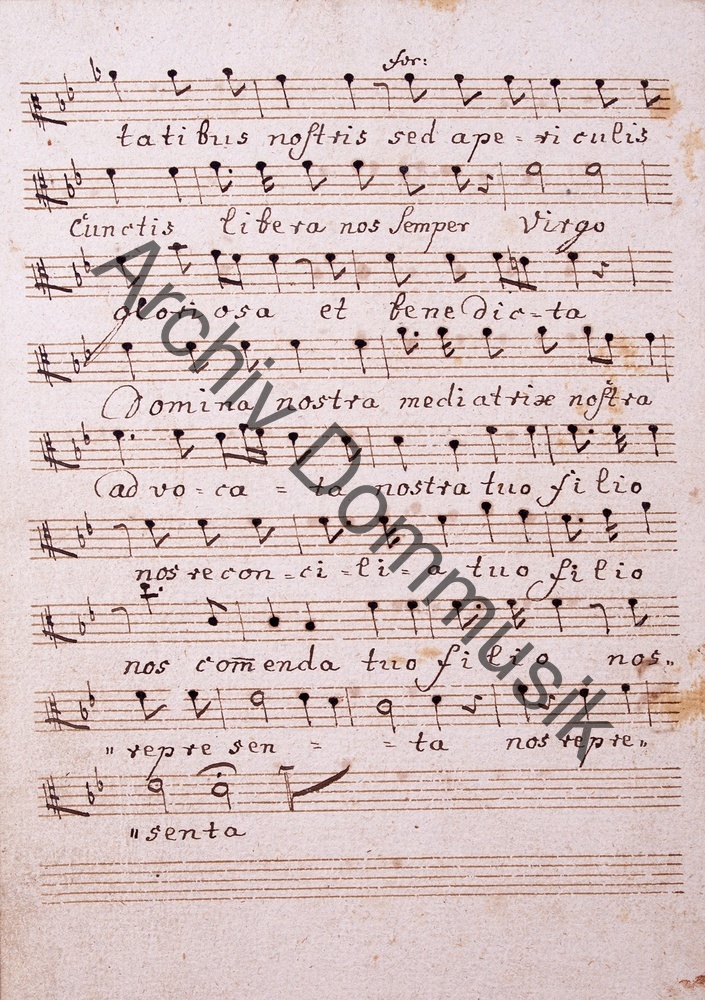 for:
tatibus nostris sed ape - ri culis
Cunctis libera nos semper Virgo
gloriosa et bene dic - ta
Domina nostra mediatrix nostra
ad vo - ca - ta nostra tuo filio
nos re con - ci - li - a tuo filio
nos com̅enda tuo filio nos„
„ repre sen = = ta nos repre„
„ senta
Archiv Dommusik